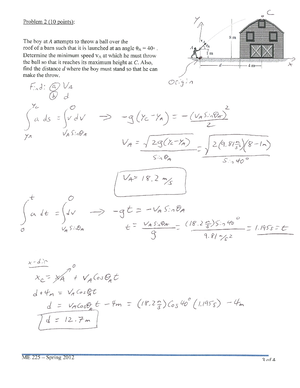 Problem 2 (10 points):
C
The boy at A attempts to throw a ball over the
roof of a barn such that it is launched at an angle θA = 40°.
Determine the minimum speed vA at which he must throw
the ball so that it reaches its maximum height at C. Also,
find the distance d where the boy must stand so that he can
make the throw.
Origin
Find: ⓐ VA
ⓑ d
∫ a ds = ∫ v dv ⟹ -g(yC-yA) = -(vA sinθA)²/2
VA = √2g(yC-yA) / sinθA = √2(9.81 m/s²)(8-1m) / sin40°
VA = 18.2 m/s
∫ a dt = ∫ dv ⟹ -gt = -vA sinθA
t = vA sinθA / g = (18.2 m/s) sin40° / 9.81 m/s² = 1.195s = t
x-dir
xC = xA + vA cosθA t
d+4m = vA cosθA t
d = vA cosθA t - 4m = (18.2 m/s) cos40° (1.195s) - 4m
d = 12.7m
ME 225 – Spring 2012
3 of 4